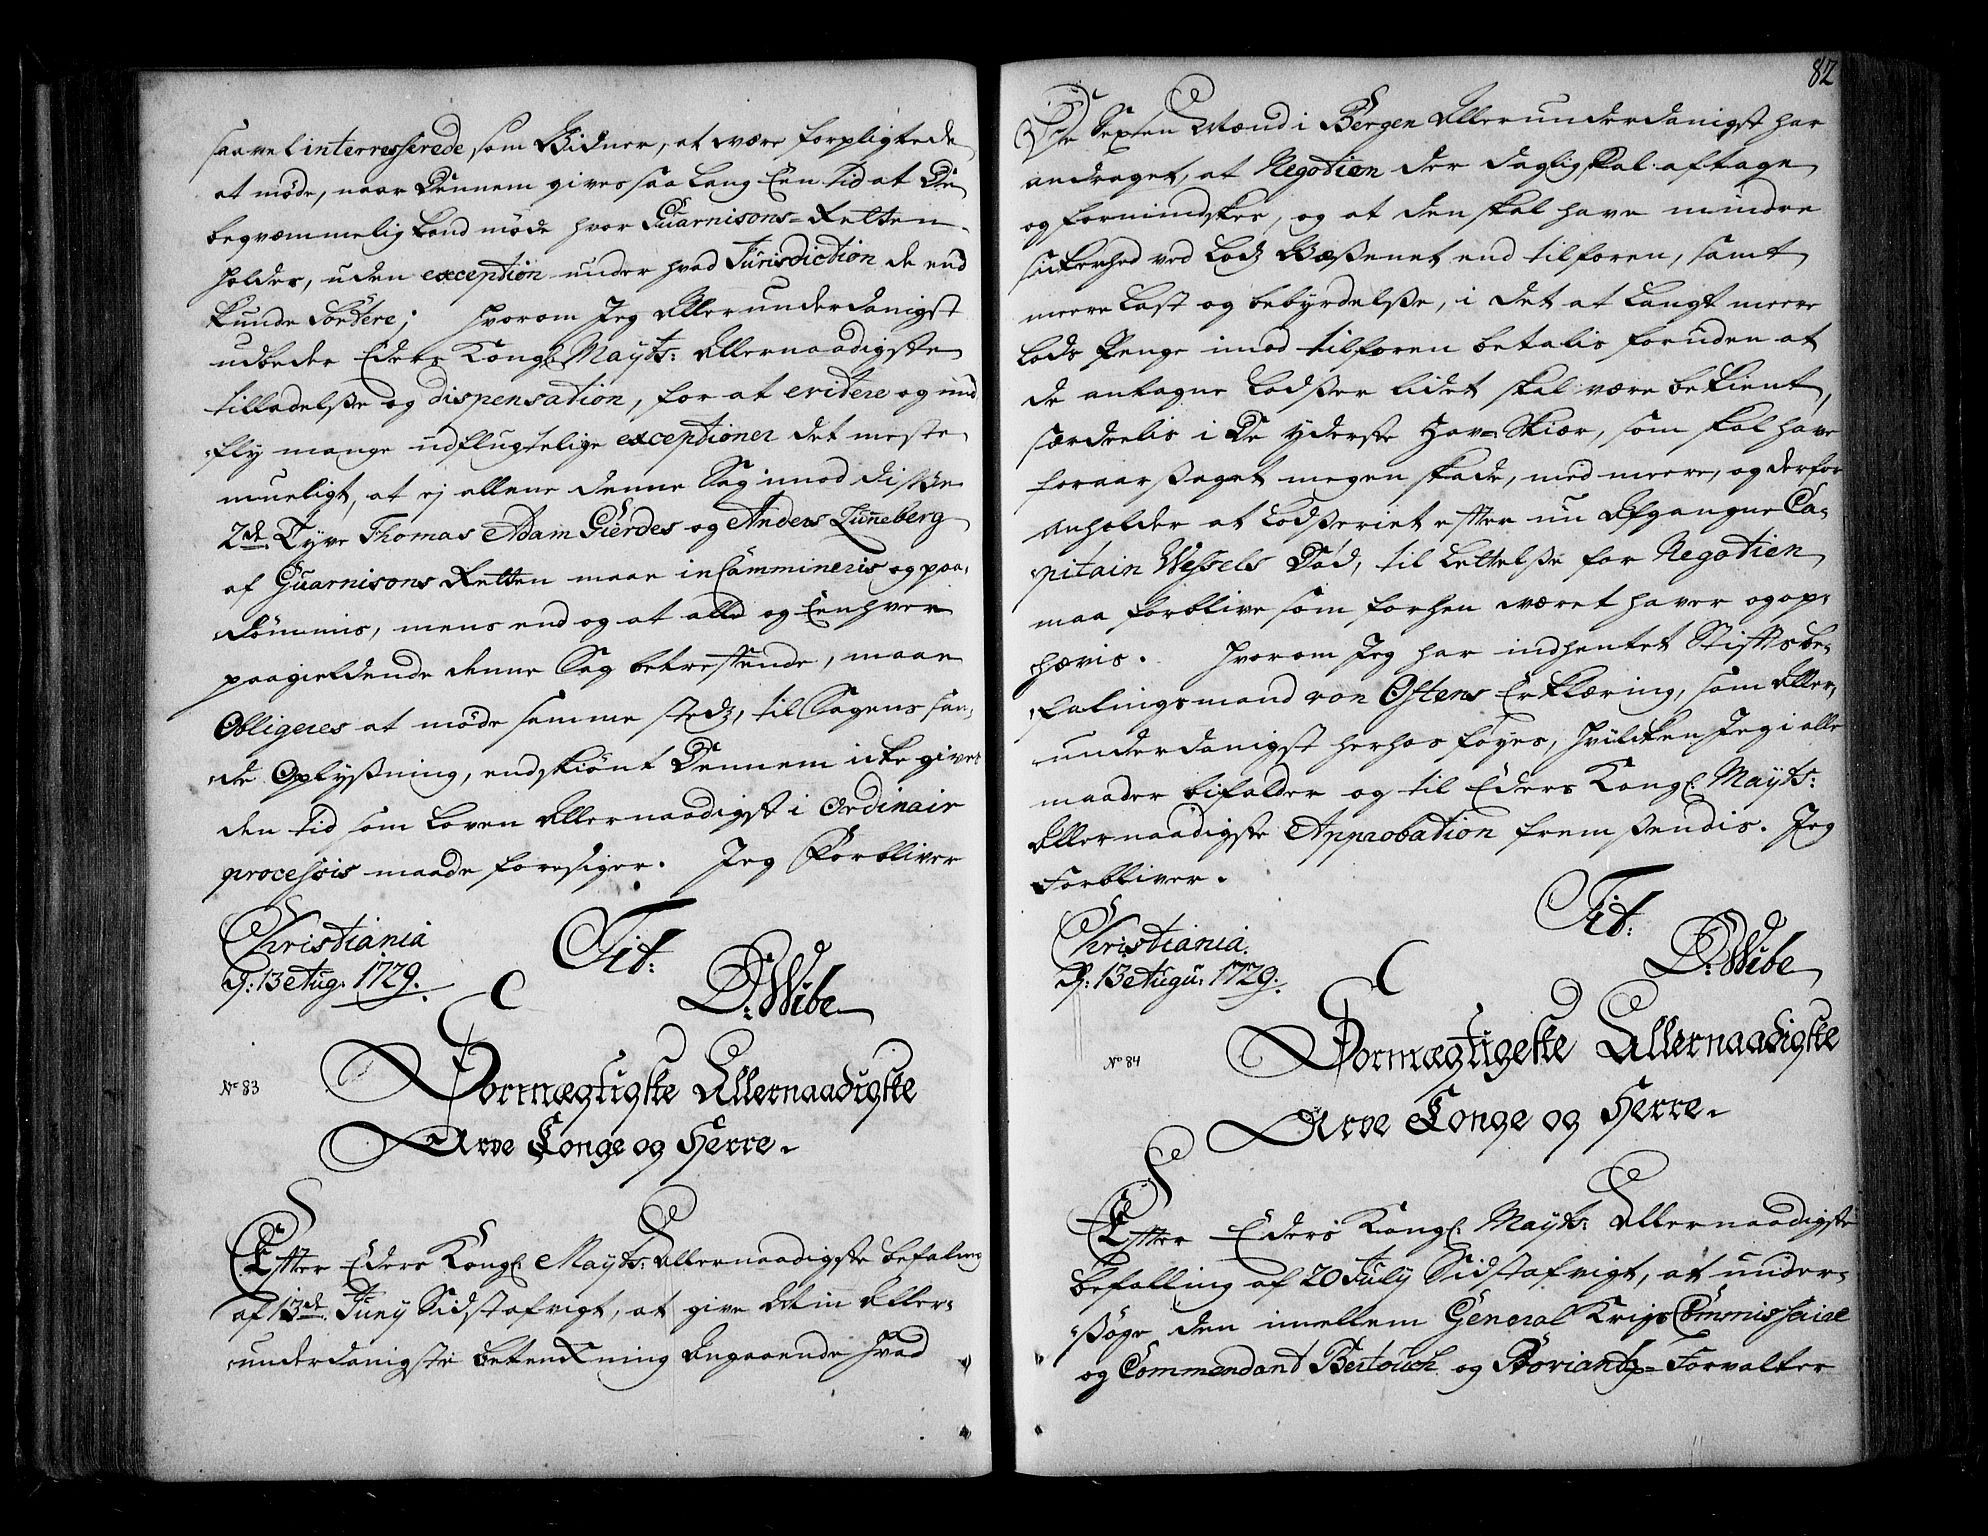 saavel interresserede som Vidner, at være forpligtede
at møde, naar Dennem gives saa lang Een tid at De
beqvemmelig kand møde hvor Guarnisons-Retten
holdes, uden exception under hvad Jurisdiction de end
kunde Sortere; hvorom Jeg Allerunderdanigst
udbeder Eders Kongl. Mayts: Allernaadigste
tilladelsse og dispensation, for at evitere og und
fly mange udflugtelige exceptioner det meste
mueligt, at ej allene denne Sag imod disse
2de Tyve Thomas Adam Gierdes og Anders Lunneberg
af Guarnisons Retten maae incammineris og paa-
dømmis, mens end og at alle og Eenhver
paagieldende denne Sag betreffende, maae
Obligeres at møde samme stedz, til Sagens san-
de Oplyssning, endskiønt Dennem icke gives
den tid som Loven Allernaadigst i Ordinair
processis maade foresiger. Jeg Forbliver
Christiania
d: 13 Aug. 1729.
Tit:
D: Wibe
No 83
Stormægtigste Allernaadigste
Arve Konge og Herre.
Efter Eders Kongl. Mayts: Allernaadigste befaling
af 13de Juny Sidst afvigt, at give det in Aller-
underdanigste betenkning angaaende hvad
82
De Sexten Mænd i Bergen Allerunderdanigst har
andraget, at Negotien der daglig skal aftage
og formindskes, og at den skal have mindre
sikerhed ved Lodz Væssenet end tilforen, samt
meere Last og bebyrdelsse, i det at Langt meere
Lods Penge imod tilforen betalis foruden at
de antagne Lodsser lidet skal være bekient,
særdeelis i De yderste Hav-Skiær, som skal have
foraarsaget megen skade, med meere, og derfor
anholder at Lodsseriet efter nu Afgangne Ca-
pitain Wessels Død, til Lettelsse for Negotien
maa forblive som forhen været haver og op-
hævis. Hvorom Jeg har indhentet Stiftsbe-
falingsmand von Ostens Erklæring, som Aller-
underdanigst herhos føyes, hvilcken Jeg i alle
maader bifalder og til Eders Kongl. Mayts:
Allernaadigste Approbation fremssendis. Jeg
Forbliver.
Christiania
d: 13 Augu: 1729.
Tit:
D: Wibe
No 84
Stormægtigeste Allernaadigste
Arve Konge og Herre.
Efter Eders Kongl. Mayts: Allernaadigste
befalling af 20 July Sidst afvigt, at under-
søge den imellem General Krigs Commissaire
og Commendant Bertouch og Proviantz-Forvalter